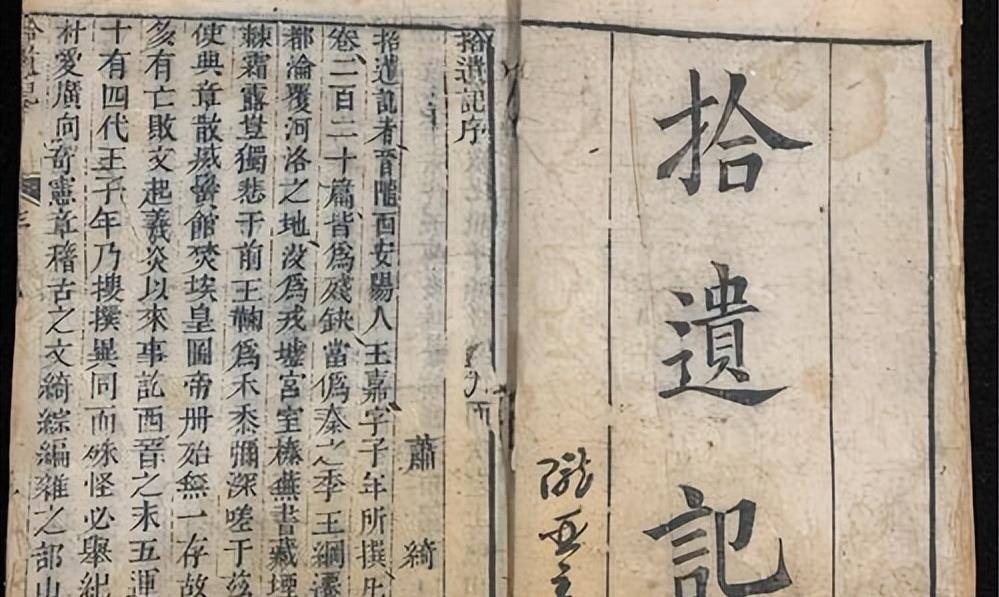 拾遺記
隴西
拾遺記序
蕭綺
拾遺記者晉隴西安陽人王嘉字子年所撰凡
卷二百二十篇皆爲殘缺當僞秦之季王綱遷
都淪覆河洛之地没爲戎墟宮室榛蕪書藏堙
棘霜露豈獨悲于前王鞠爲禾黍彌深嗟于兹
使典章散滅黌館焚埃皇圖帝册殆無一存故
多有亡敗文起羲炎以來事訖西晉之末五運
十有四代王子年乃搜撰異同而殊怪必舉紀
朴愛廣向奇憲章稽古之文綺綜編雜之部山
拾遺記